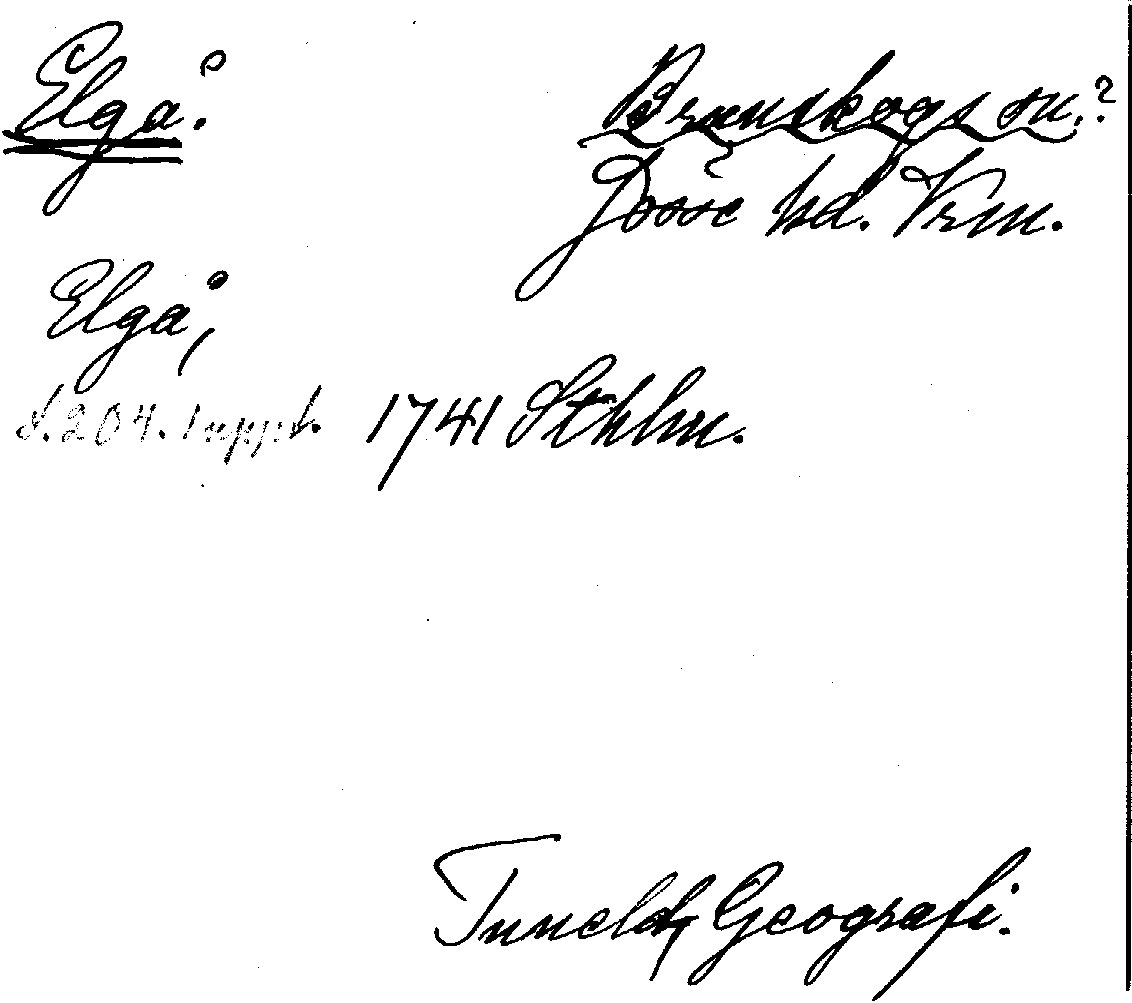 Elgå.
Brunskogs sn.?
Jösse hd. Vrm.
Elgå,
s. 204. 1 uppl. 1741 Sthlm.
Tunelds Geografi.